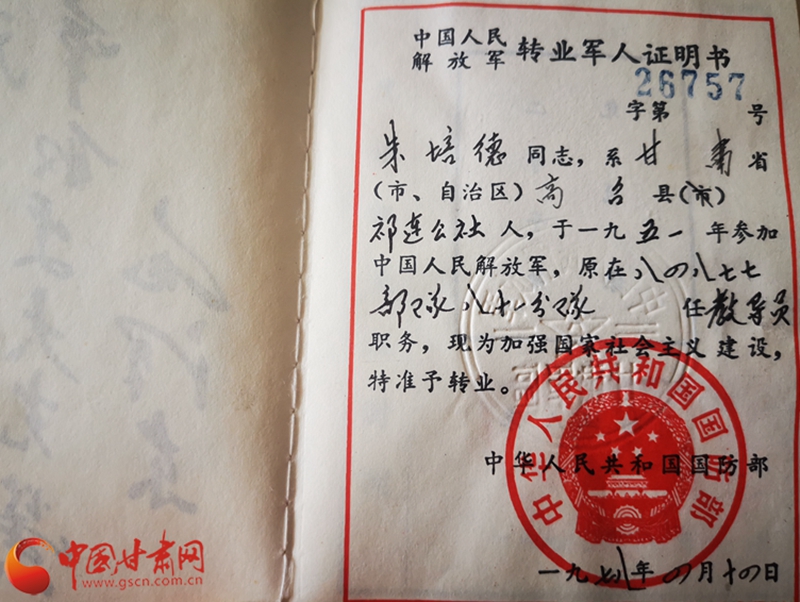 中国人民
解放军 转业军人证明书
26757
字第 号
朱培德 同志，系甘肃省
（市、自治区）高台县（市）
祁连公社人，于一九五一年参加
中国人民解放军，原在八四八七七
部队八十一分队 任教导员
职务，现为加强国家社会主义建设，
特准予转业。
中华人民共和国国防部
中华人民共和国国防部
一九七八年四月十四日
中国甘肃网
www.gscn.com.cn